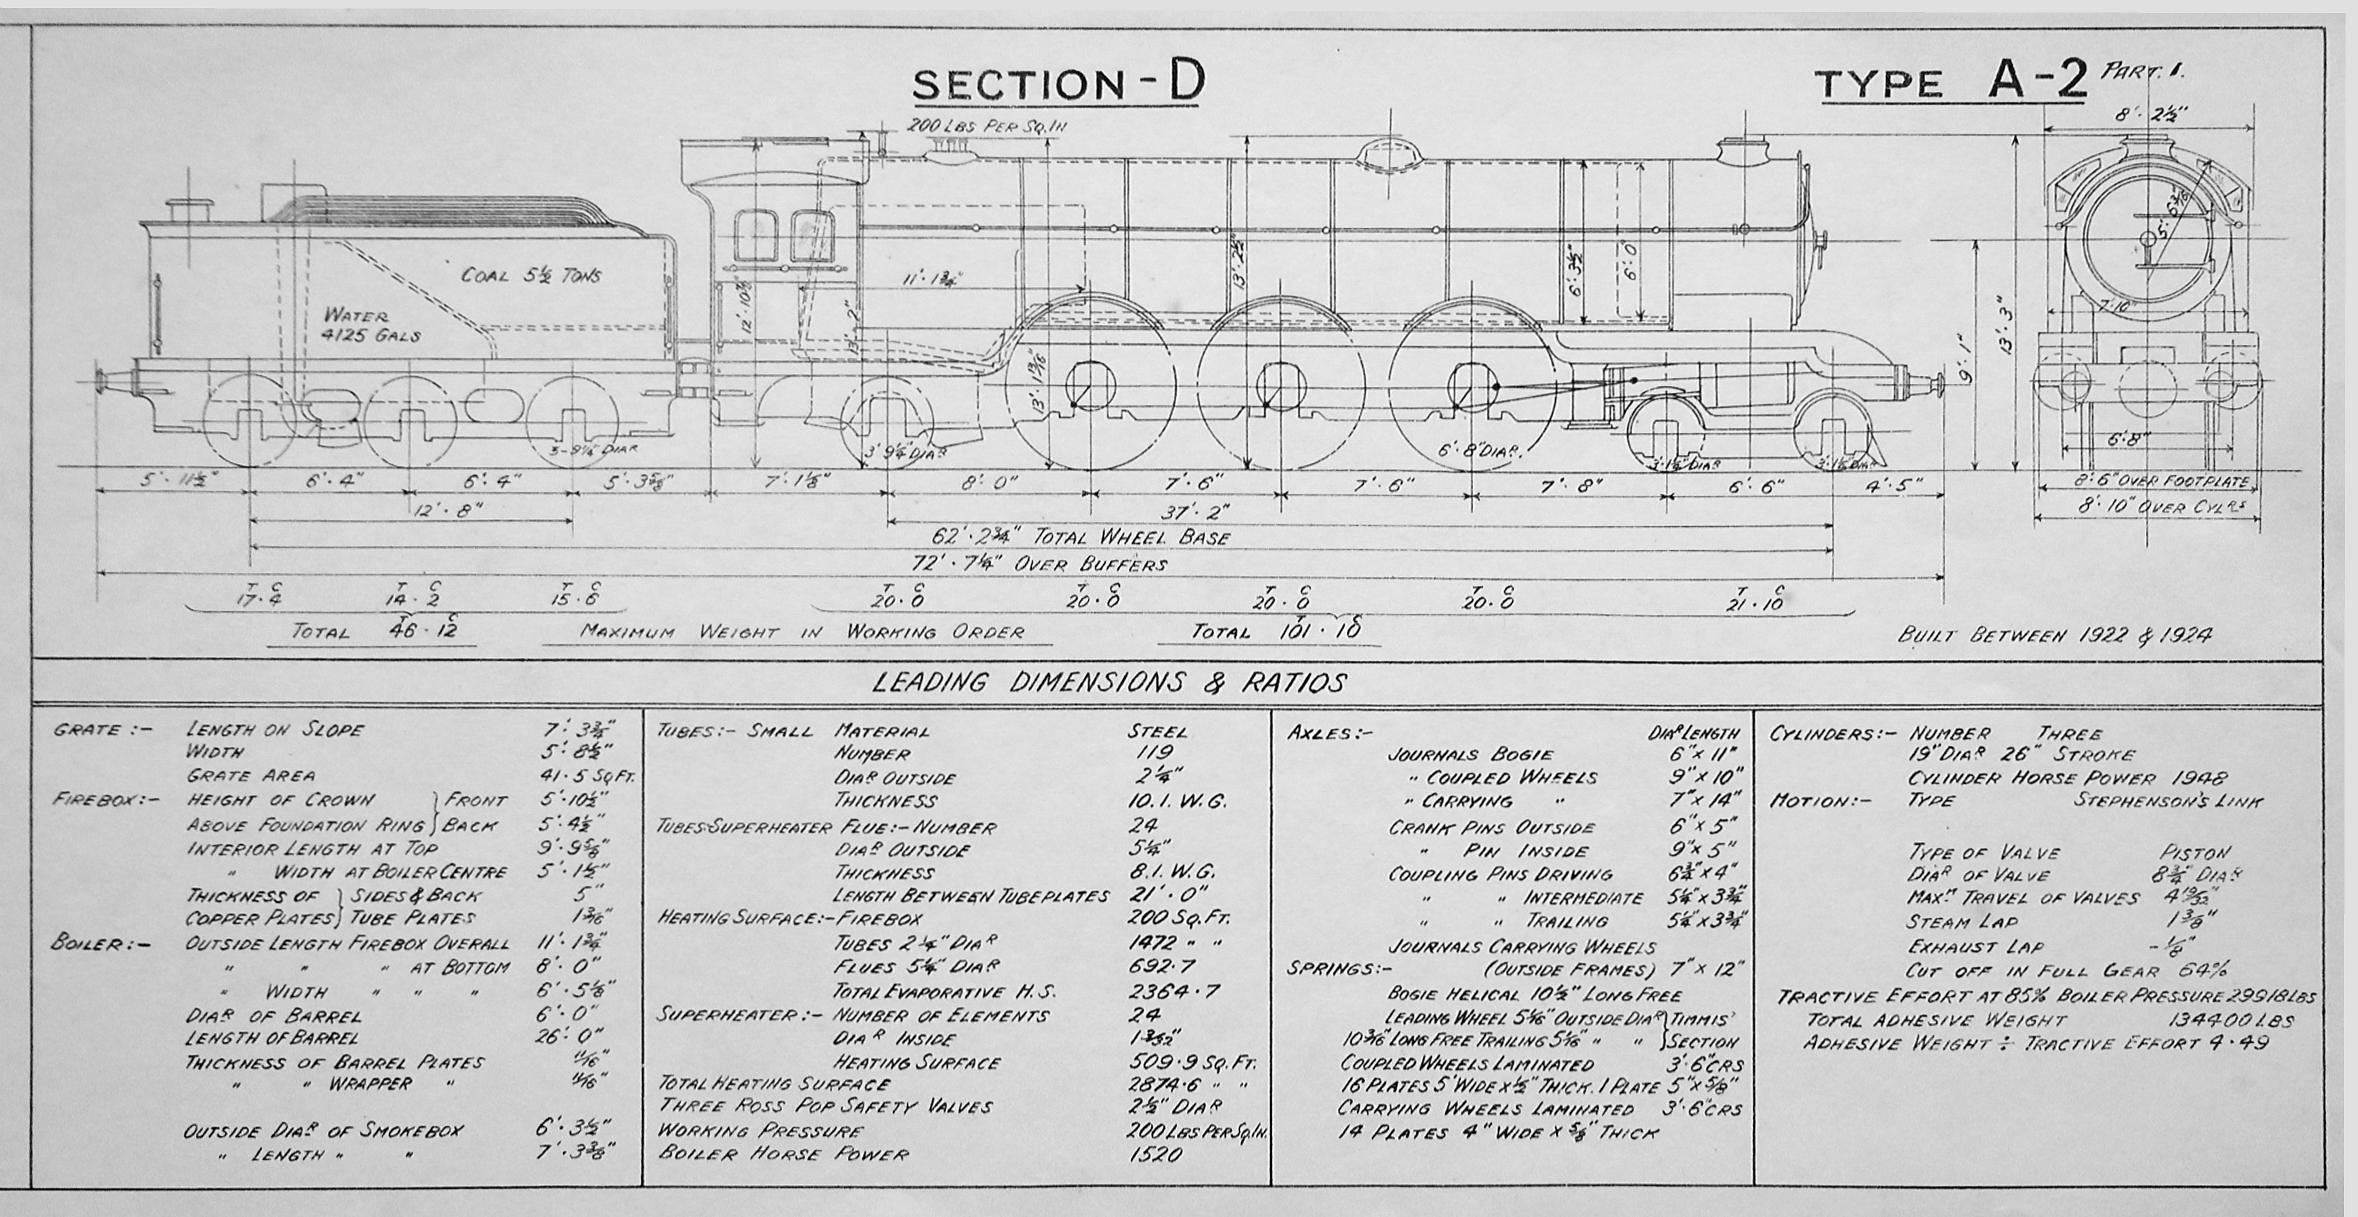 SECTION-D
TYPE A-2 PART. 1.
200 LBS PER SQ.IN
8'. 2½"
COAL 5½ TONS
WATER
4125 GALS
12'. 10¾"
13'. 2"
11'. 1¾"
13'. 1 13/16"
13'. 2½"
6'. 3½"
6'. 0"
5'. 6⅜"
7'. 10"
9'. 1"
13'. 3"
3-9¼" DIAR
3'9¼" DIAR
6'. 8" DIAR.
3'.1½" DIAR
3'.1½" DIAR
6'.8"
5'. 11½"
6'. 4"
6'. 4"
5'. 3⅝"
7'. 1⅛"
8'. 0"
7'. 6"
7'. 6"
7'. 8"
6'. 6"
4'. 5"
8'. 6" OVER FOOTPLATE
12'. 8"
37'. 2"
8'. 10" OVER CYLRS
62'. 2¾" TOTAL WHEEL BASE
72'. 7¼" OVER BUFFERS
T C T C T C T C T C T C T C T C
17. 4 14. 2 15. 6 20. 0 20. 0 20. 0 20. 0 21. 10
T C T C
TOTAL 46. 12 MAXIMUM WEIGHT IN WORKING ORDER TOTAL 101. 10
BUILT BETWEEN 1922 & 1924
LEADING DIMENSIONS & RATIOS
GRATE :- LENGTH ON SLOPE 7'. 3¾"
WIDTH 5'. 8½"
GRATE AREA 41.5 SQ FT.
FIREBOX:- HEIGHT OF CROWN } FRONT 5'.10½"
ABOVE FOUNDATION RING } BACK 5'.4½"
INTERIOR LENGTH AT TOP 9'.9⅝"
" WIDTH AT BOILER CENTRE 5'.1½"
THICKNESS OF } SIDES & BACK 5"
COPPER PLATES } TUBE PLATES 1 3/16"
BOILER:- OUTSIDE LENGTH FIREBOX OVERALL 11'. 1¾"
" " " AT BOTTOM 8'. 0"
" WIDTH " " " 6'. 5⅛"
DIAR OF BARREL 6'. 0"
LENGTH OF BARREL 26'. 0"
THICKNESS OF BARREL PLATES 11/16"
" " WRAPPER " 11/16"
OUTSIDE DIAR OF SMOKEBOX 6'. 3½"
" LENGTH " " 7'. 3⅜"
TUBES:- SMALL MATERIAL STEEL
NUMBER 119
DIAR OUTSIDE 2¼"
THICKNESS 10. I. W. G.
TUBES:SUPERHEATER FLUE:- NUMBER 24
DIAR OUTSIDE 5¼"
THICKNESS 8.I. W.G.
LENGTH BETWEEN TUBEPLATES 21'. 0"
HEATING SURFACE:- FIREBOX 200 SQ.FT.
TUBES 2¼" DIAR 1472 " "
FLUES 5¼" DIAR 692.7
TOTAL EVAPORATIVE H.S. 2364.7
SUPERHEATER :- NUMBER OF ELEMENTS 24
DIAR INSIDE 1 3/32"
HEATING SURFACE 509.9 SQ. FT.
TOTAL HEATING SURFACE 2874.6 " "
THREE ROSS POP SAFETY VALVES 2½" DIAR
WORKING PRESSURE 200 LBS PER SQ.IN.
BOILER HORSE POWER 1520
AXLES:- DIAR LENGTH
JOURNALS BOGIE 6" x 11"
" COUPLED WHEELS 9" x 10"
" CARRYING " 7" x 14"
CRANK PINS OUTSIDE 6" x 5"
" PIN INSIDE 9" x 5"
COUPLING PINS DRIVING 6¾" x 4"
" " INTERMEDIATE 5¼" x 3¾"
" " TRAILING 5¼" x 3¾"
JOURNALS CARRYING WHEELS
SPRINGS:- (OUTSIDE FRAMES) 7" x 12"
BOGIE HELICAL 10½" LONG FREE
LEADING WHEEL 5 1/16" OUTSIDE DIAR } TIMMIS'
10 3/16" LONG FREE TRAILING 5 1/16" " " } SECTION
COUPLED WHEELS LAMINATED 3'. 6" CRS
16 PLATES 5" WIDE x ½" THICK. 1 PLATE 5" x ⅝"
CARRYING WHEELS LAMINATED 3'. 6" CRS
14 PLATES 4" WIDE x ⅝" THICK
CYLINDERS:- NUMBER THREE
19" DIAR 26" STROKE
CYLINDER HORSE POWER 1948
MOTION:- TYPE STEPHENSON'S LINK
TYPE OF VALVE PISTON
DIAR OF VALVE 8¾" DIAR
MAXM TRAVEL OF VALVES 4 19/32"
STEAM LAP 1⅜"
EXHAUST LAP -⅛"
CUT OFF IN FULL GEAR 64%
TRACTIVE EFFORT AT 85% BOILER PRESSURE 29918LBS
TOTAL ADHESIVE WEIGHT 134400 LBS
ADHESIVE WEIGHT ÷ TRACTIVE EFFORT 4.49